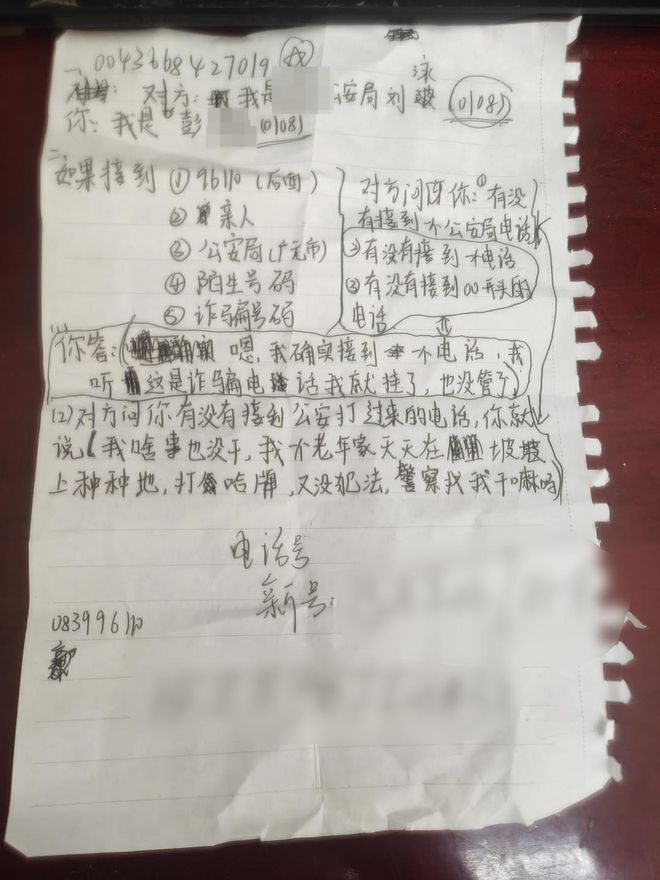 一、0043668427019
对方: 我是 安局刘泳 (0108)
你: 我是 彭 (0108)
二、如果接到 ① 96110 (后面)
② 亲人
③ 公安局(广元市)
④ 陌生号码
⑤ 诈骗编号码
对方问你:①有没
有接到个公安局电话
②有没有接到个电话
③有没有接到00开头的
电话
(1)
你答: 嗯,我确实接到一个电话,我
听 这是诈骗电话我就挂了,也没管了
(2)对方问你有没有接到公安打过来的电话,你就
说(我啥事也没干,我个老年家天天在 坡坡
上种种地,打哈牌,又没犯法,警察找我干嘛吗)
电话号
新号:
083996110